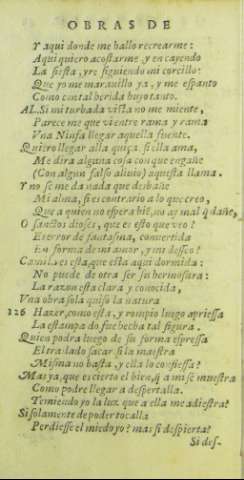 OBRAS DE
Y aqui donde me hallo recrearme:
Aqui quiero acostarme, y en cayendo
La siesta, yre siguiendo mi corcillo:
Que yo me marauillo ya, y me espanto
Como con tal herida huyo tanto.
AL. Si mi turbada vista no me miente,
Parece me que vi entre rama y rama
Vna Ninfa llegar aquella fuente.
Quiero llegar alla quiça si ella ama,
Me dira alguna cosa con que engañe
(Con algun falso aliuio) aquesta llama.
Y no se me da nada que desbañe
Mi alma, si es contrario a lo que creo,
Que a quien no espera biẽ, no ay mal q̃ dañe,
O sanctos dioses, que es esto que veo?
Es error de fantasma, conuertida
En forma de mi amor, y mi desseo?
Camila es esta, que esta aqui dormida:
No puede de otra ser su hermosura:
La razon esta clara y conocida,
Vna obra sola quiso la natura
126 Hazer, como esta, y rompio luego apriessa
La estampa do fue hecha tal figura.
Quien podra luego de su forma espressa
El traslado sacar si la maestra
Misma no basta, y ella lo confiessa?
Mas ya, que es cierto el bien, q̃ a mi se muestra
Como podre llegar a despertalla.
Temiendo yo la luz que a ella me adiestra?
Si solamente de poder tocalla
Perdiesse el miedo yo? mas si despierta?
Si des-